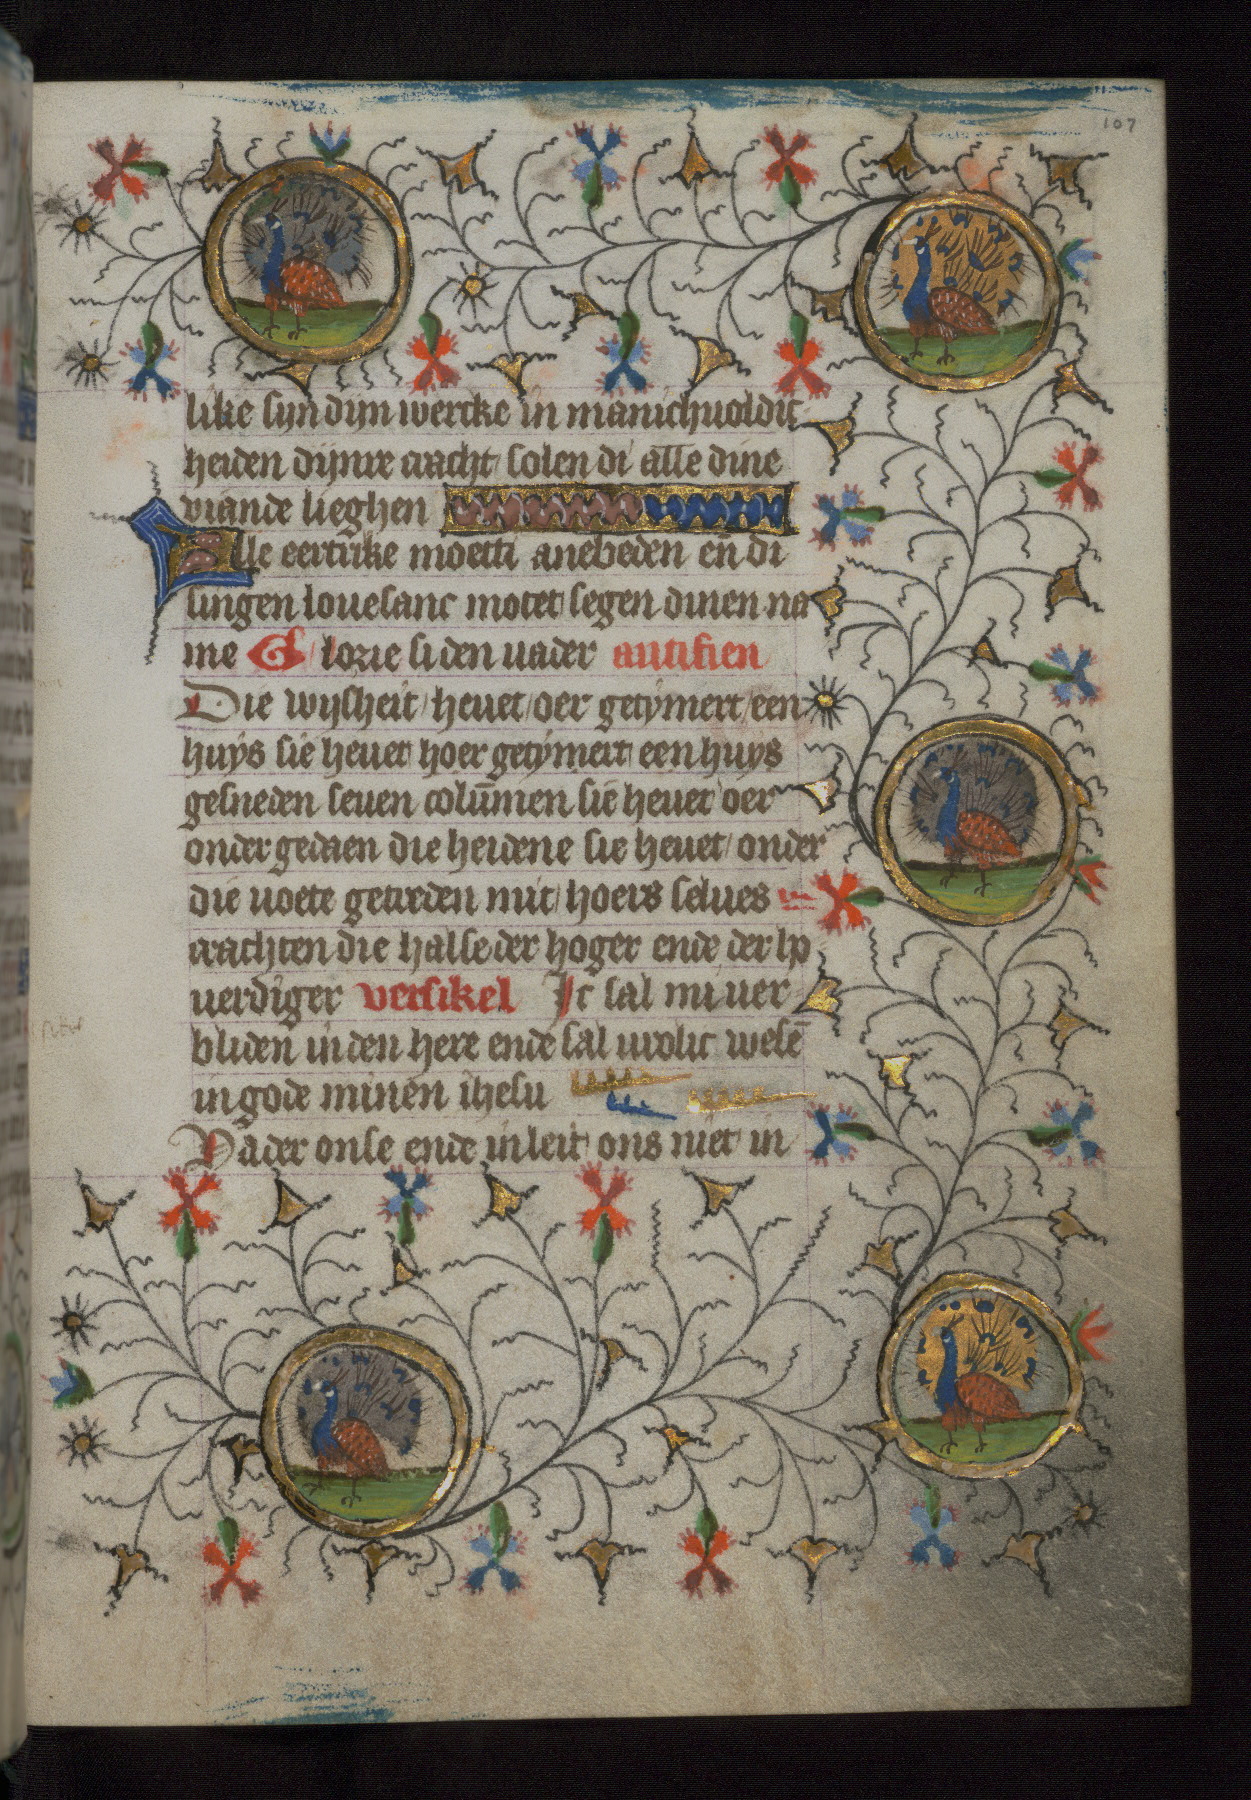 107
like syn dyn wercke in manichuoldic
heiden dijnre cracht solen di alle dine
viande lieghen
Alle eertrike moetti anebeden en̄ di
singen louesanc moten segen dinen na
me Glorie si den uader antifien
Die wijsheit heuet oer getymert een
huys sie heuet hoer getymert een huys
gesneden seuen colūmen sie heuet oer
onder gedaen die heidene sie heuet onder
die uoete getreden mit hoers selues
crachten die halse der hoger ende der ho
uerdiger versikel Ic sal mi uer
bliden in den here ende sal urolic wesē
in gode minen ihesu
Vader onse ende inleit ons niet in